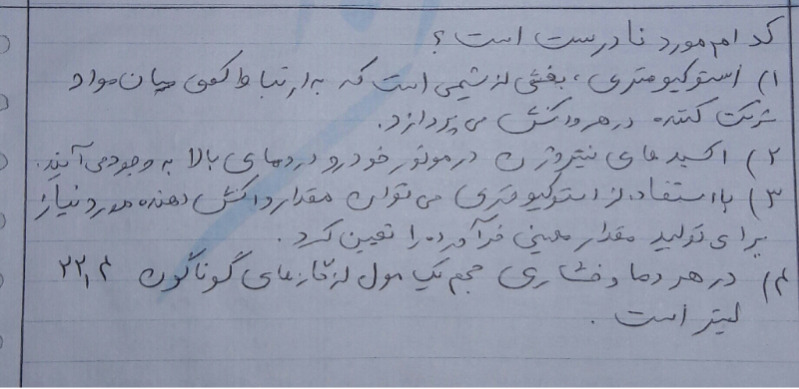 کدام مورد نادرست است ؟
۱) استوکیومتری ، بخشی از شیمی است که به ارتباط کمی میان مواد
شرکت کننده در هر واکنش می پردازد.
۲) اکسید های نیتروژن در موتور خودرو در دمای بالا به وجود می آیند.
۳) با استفاده از استوکیومتری می توان مقدار واکنش دهنده مورد نیاز
برای تولید مقدار معینی فرآورده را تعیین کرد .
۴) در هر دما و فشاری حجم یک مول از گازهای گوناگون ۲۲,۴
لیتر است .